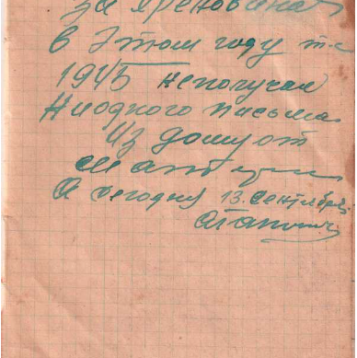 за
В этом году т-е
1945 неполучал
Ниодного письма
из дому от
матери
А сегодня 13. сентября,